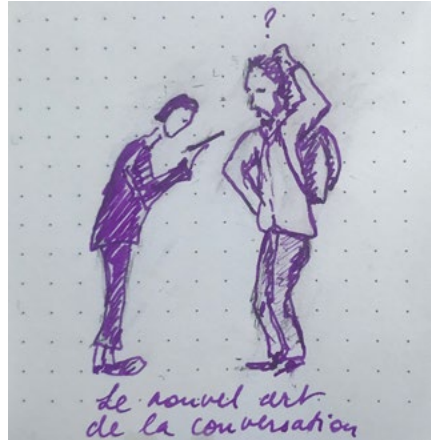 ?
Le nouvel art
de la conversation